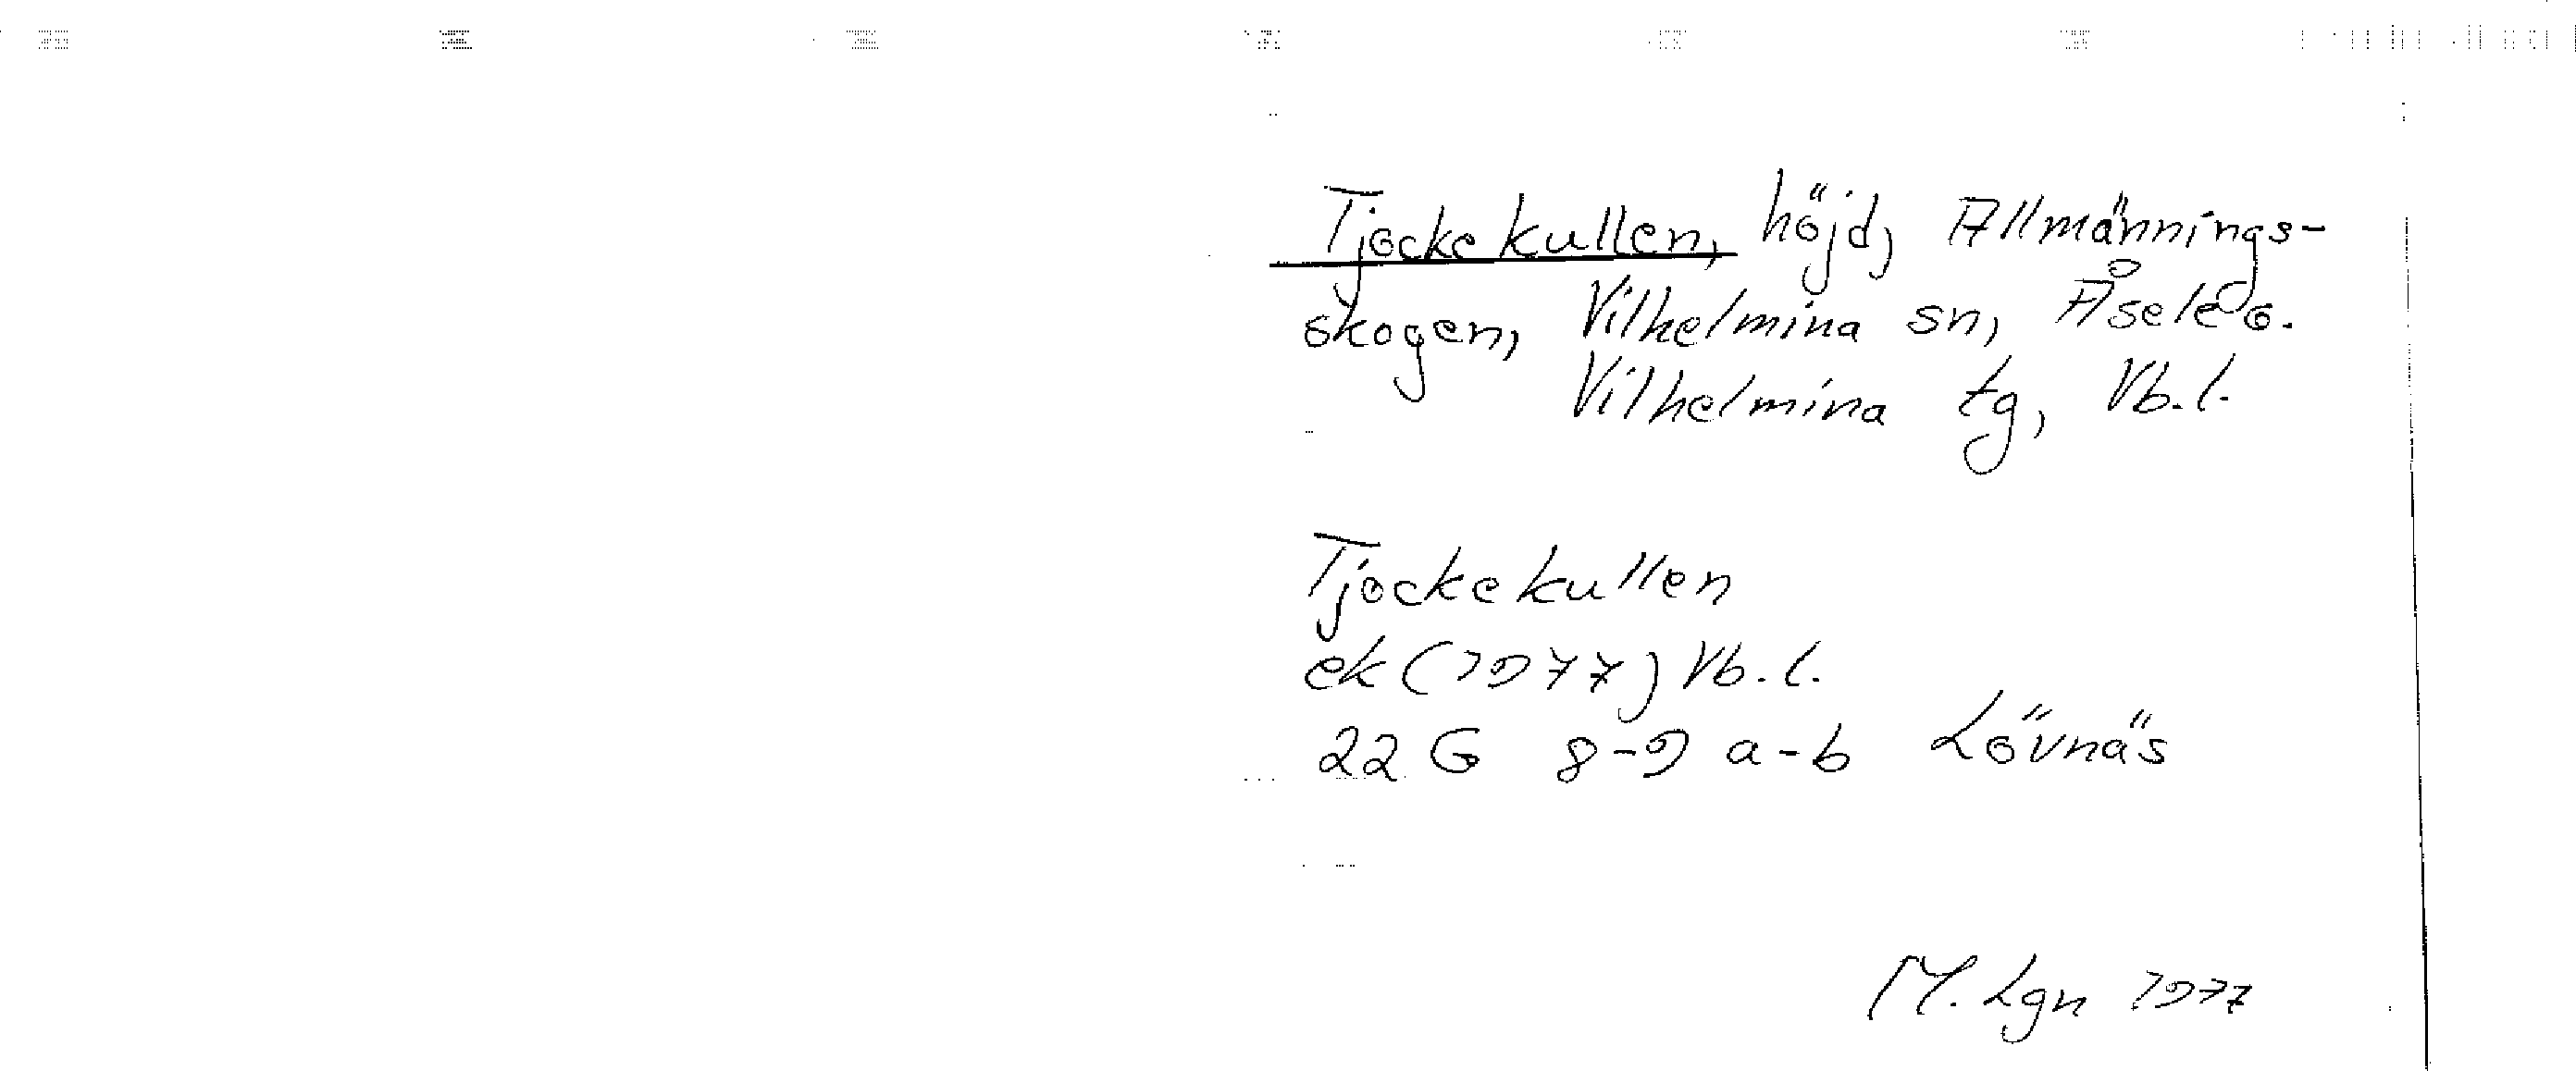 Tjockekullen, höjd, Allmännings-
skogen, Vilhelmina sn, Åsele o.
Vilhelmina tg, Vb. l.
Tjockekullen
ek (1977) Vb. l.
22 G 8-9 a-b Lövnäs
M. Lgn 1977